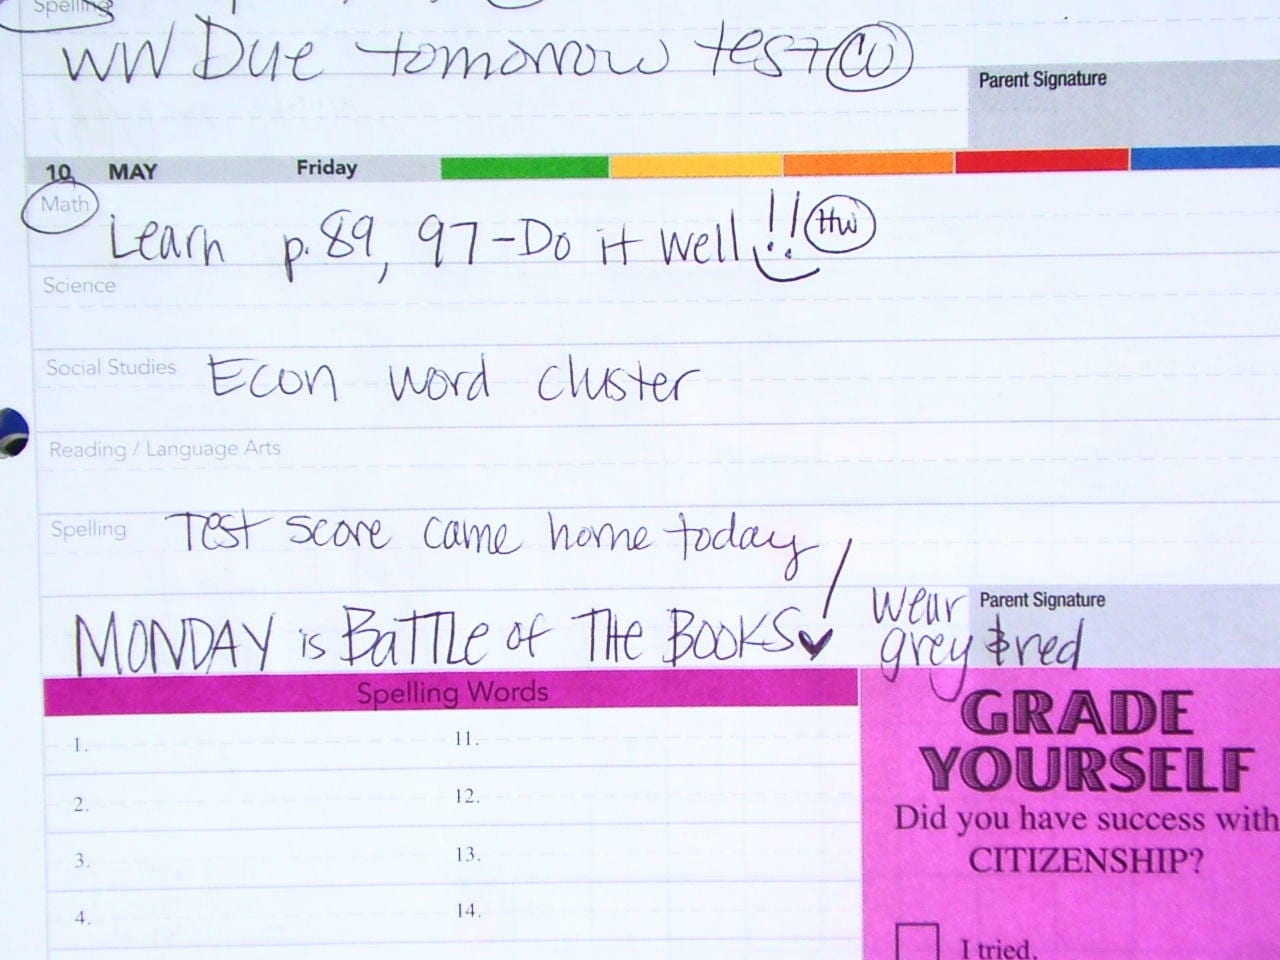 Spelling
WW Due tomorrow test CW
Parent Signature
10 MAY Friday
Math
Learn p. 89, 97 - Do it well!! HW
Science
Social Studies Econ word cluster
Reading / Language Arts
Spelling Test score came home today
MONDAY is BATTLE of THE BOOKS! wear grey & red
Parent Signature
Spelling Words
1. 11.
2. 12.
3. 13.
4. 14.
GRADE
YOURSELF
Did you have success with
CITIZENSHIP?
I tried.